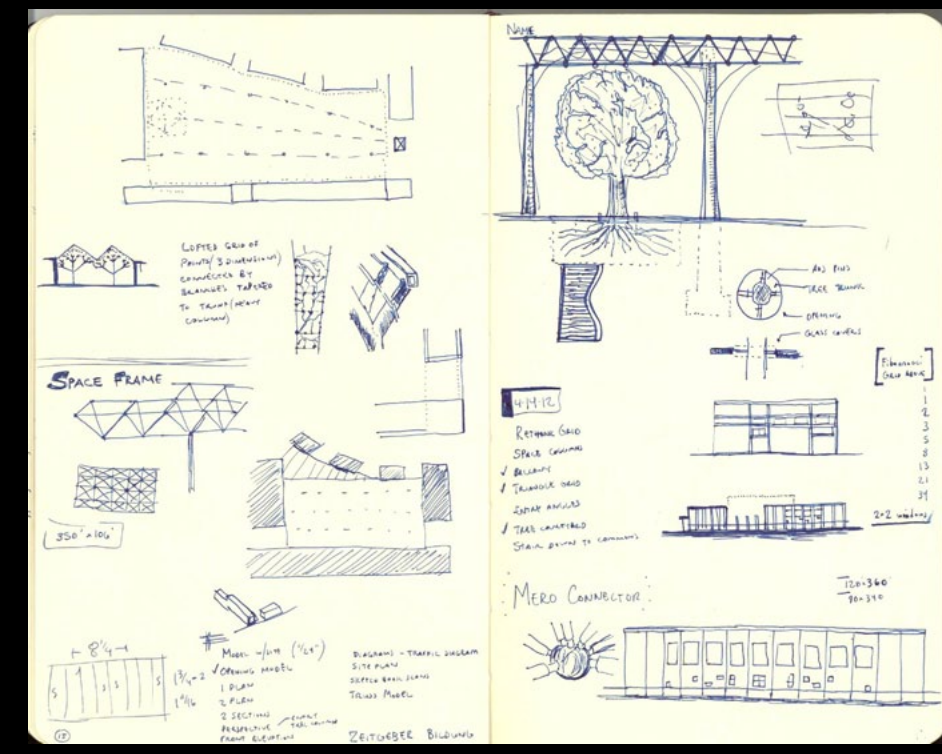 LOFTED GRID OF
POINTS (3 DIMENSIONS)
CONNECTED BY
BRANCHES TAPERED
TO TRUNK (HEAVY
COLUMN)
SPACE FRAME
350' x 106'
8 1/4
S
S
S
S
1 3/4 = 2
MODEL W/ SITE
✓ OPENING MODEL
1 PLAN
2 PLAN
2 SECTIONS
PERSPECTIVE
FRONT ELEVATION
DIAGRAMS - TRAFFIC DIAGRAM
SITE PLAN
SKETCH BOOK SCANS
TRUSS MODEL
ZEITGEBER BILDUNG
NAME
TREE TRUNK
OPENING
GLASS COVERS
Fibonacci
GRID ABOVE
1
1
2
3
5
8
13
21
34
2×2 windows
4·14·12
RETHINK GRID
SPACE COLUMNS
✓ BALCONY
✓ TRIANGLE GRID
ENTRY ANGLES
✓ TREE COURTYARD
STAIR DOWN TO COMMONS
MERO CONNECTOR:
120×360
90×340